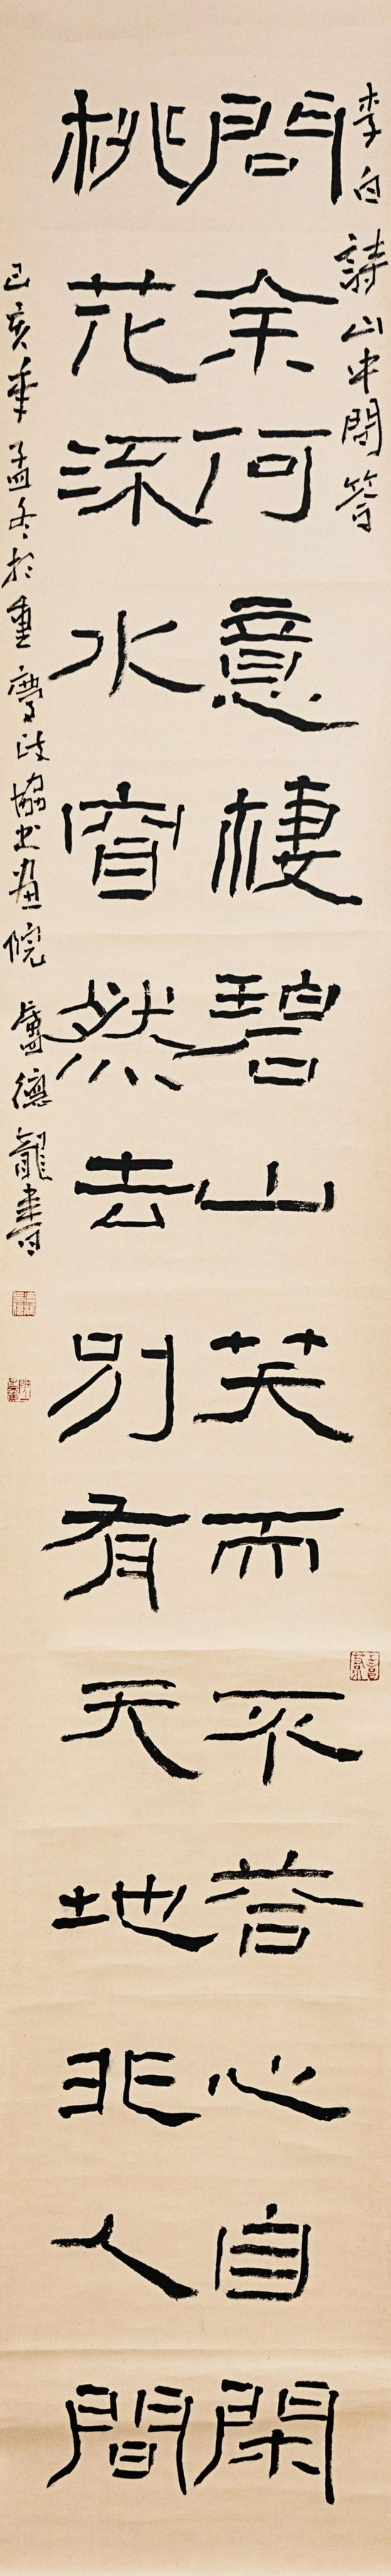 李白詩山中問答
問余何意棲碧山笑而不答心自閑
桃花流水窅然去別有天地非人間
己亥年孟冬於重慶政協書畫院盧德龍書